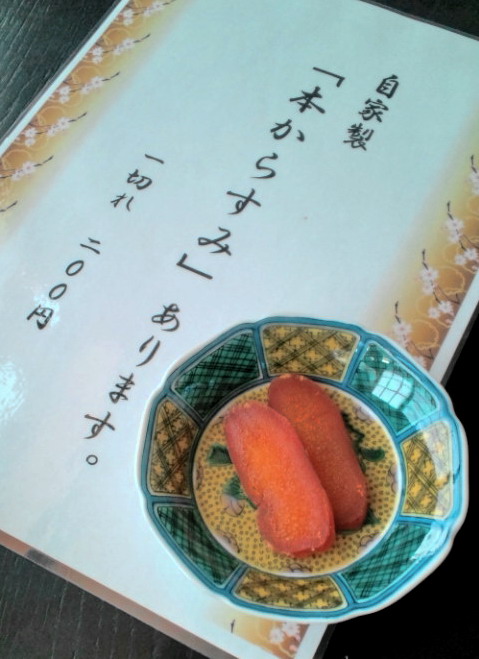 自家製
「本からすみ」あります。
一切れ 二〇〇円